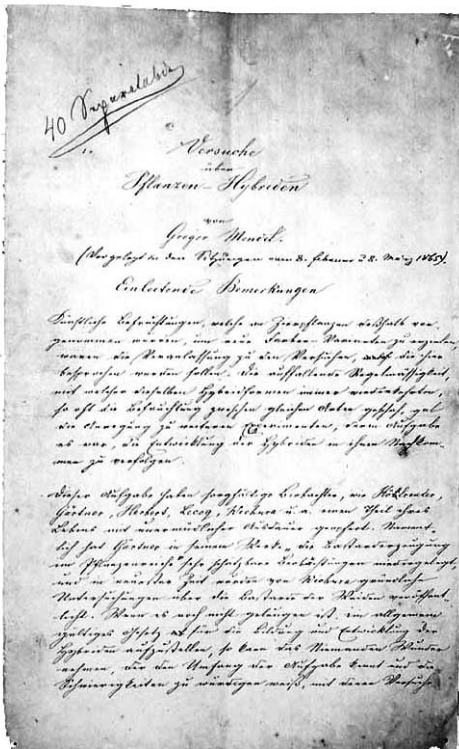 40 Separatabdr.
Versuche
über
Pflanzen-Hybriden
von
Gregor Mendel.
(Vorgelegt in den Sitzungen vom 8. Februar & 8. März 1865).
Einleitende Bemerkungen
Künstliche Befruchtungen, welche an Zierpflanzen deßhalb vor-
genommen wurden, um neue Farben-Varianten zu erzielen,
waren die Veranlassung zu den Versuchen, die hier
besprochen werden sollen. Die auffallende Regelmäßigkeit,
mit welcher dieselben Hybridformen immer wiederkehrten,
so oft die Befruchtung zwischen gleichen Arten geschah, gab
die Anregung zu weiteren Experimenten, deren Aufgabe
es war, die Entwicklung der Hybriden in ihren Nachkom-
men zu verfolgen.
Dieser Aufgabe haben sorgfältige Beobachter, wie Kölreuter,
Gärtner, Herbert, Lecoq, Wichura u. a. einen Theil ihres
Lebens mit unermüdlicher Ausdauer geopfert. Nament-
lich hat Gärtner in seinem Werke „die Bastarderzeugung
im Pflanzenreiche" sehr schätzbare Beobachtungen niedergelegt,
und in neuester Zeit wurden von Wichura gründliche
Untersuchungen über die Bastarde der Weiden veröffent-
licht. Wenn es noch nicht gelungen ist, ein allgemein
gültiges Gesetz für die Bildung und Entwicklung der
Hybriden aufzustellen, so kann das Niemanden Wunder
nehmen, der den Umfang der Aufgabe kennt und die
Schwierigkeiten zu würdigen weiß, mit denen Versuche